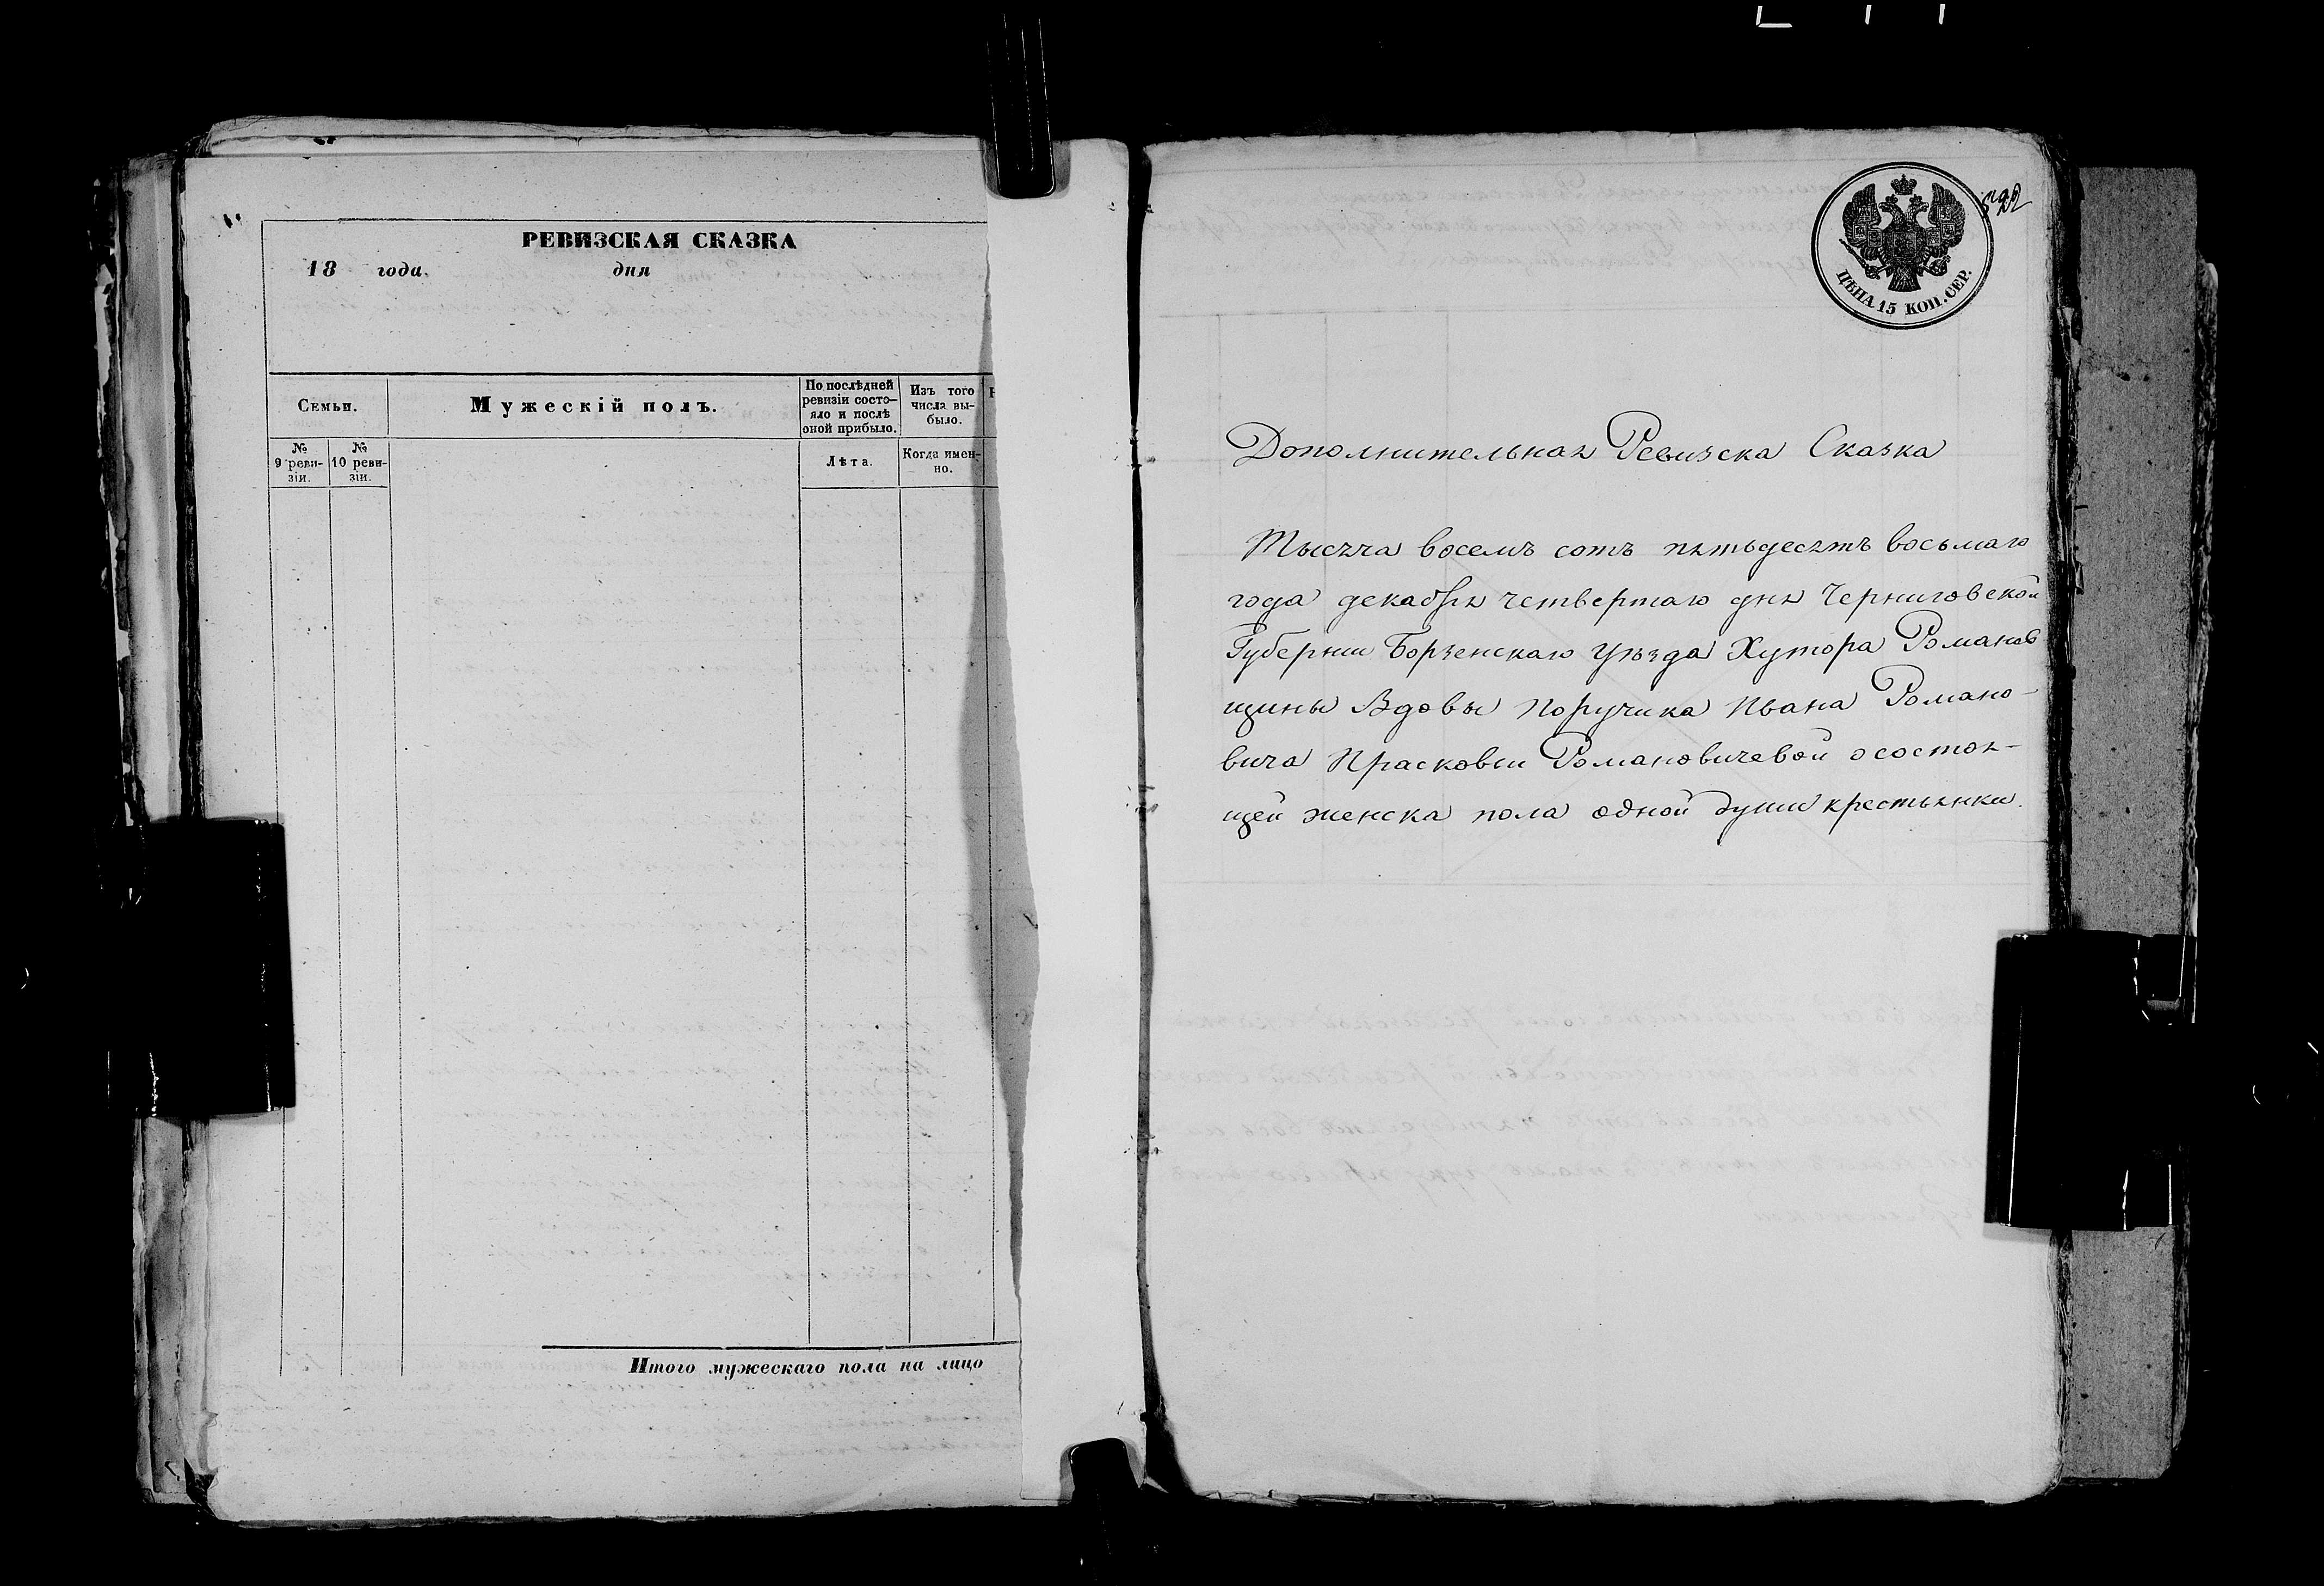 РЕВИЗСКАЯ СКАЗКА
18 года дня
Семьи.
Мужескій полъ.
По послѣдней ревизіи состо-
яло и послѣ
оной прибыло.
Изъ того
числа вы-
было.
№
9 реви-
зіи.
№
10 реви-
зіи.
Лѣта.
Когда имен-
но.
Итого мужескаго пола на лицо
ЦѢНА 15 КОП. СЕР.
Дополнительная Ревизска Сказка
Тысяча восемъ сотъ пятьдесятъ восьмаго
года декабря четвертаго дня Черниговской
Губернии Борзенскаго Уѣзда Хутора Романов
щины Вдовы Поручика Ивана Романо-
вича Прасковьи Романовичевой о состоя-
щей женска пола одной души крестьянки.